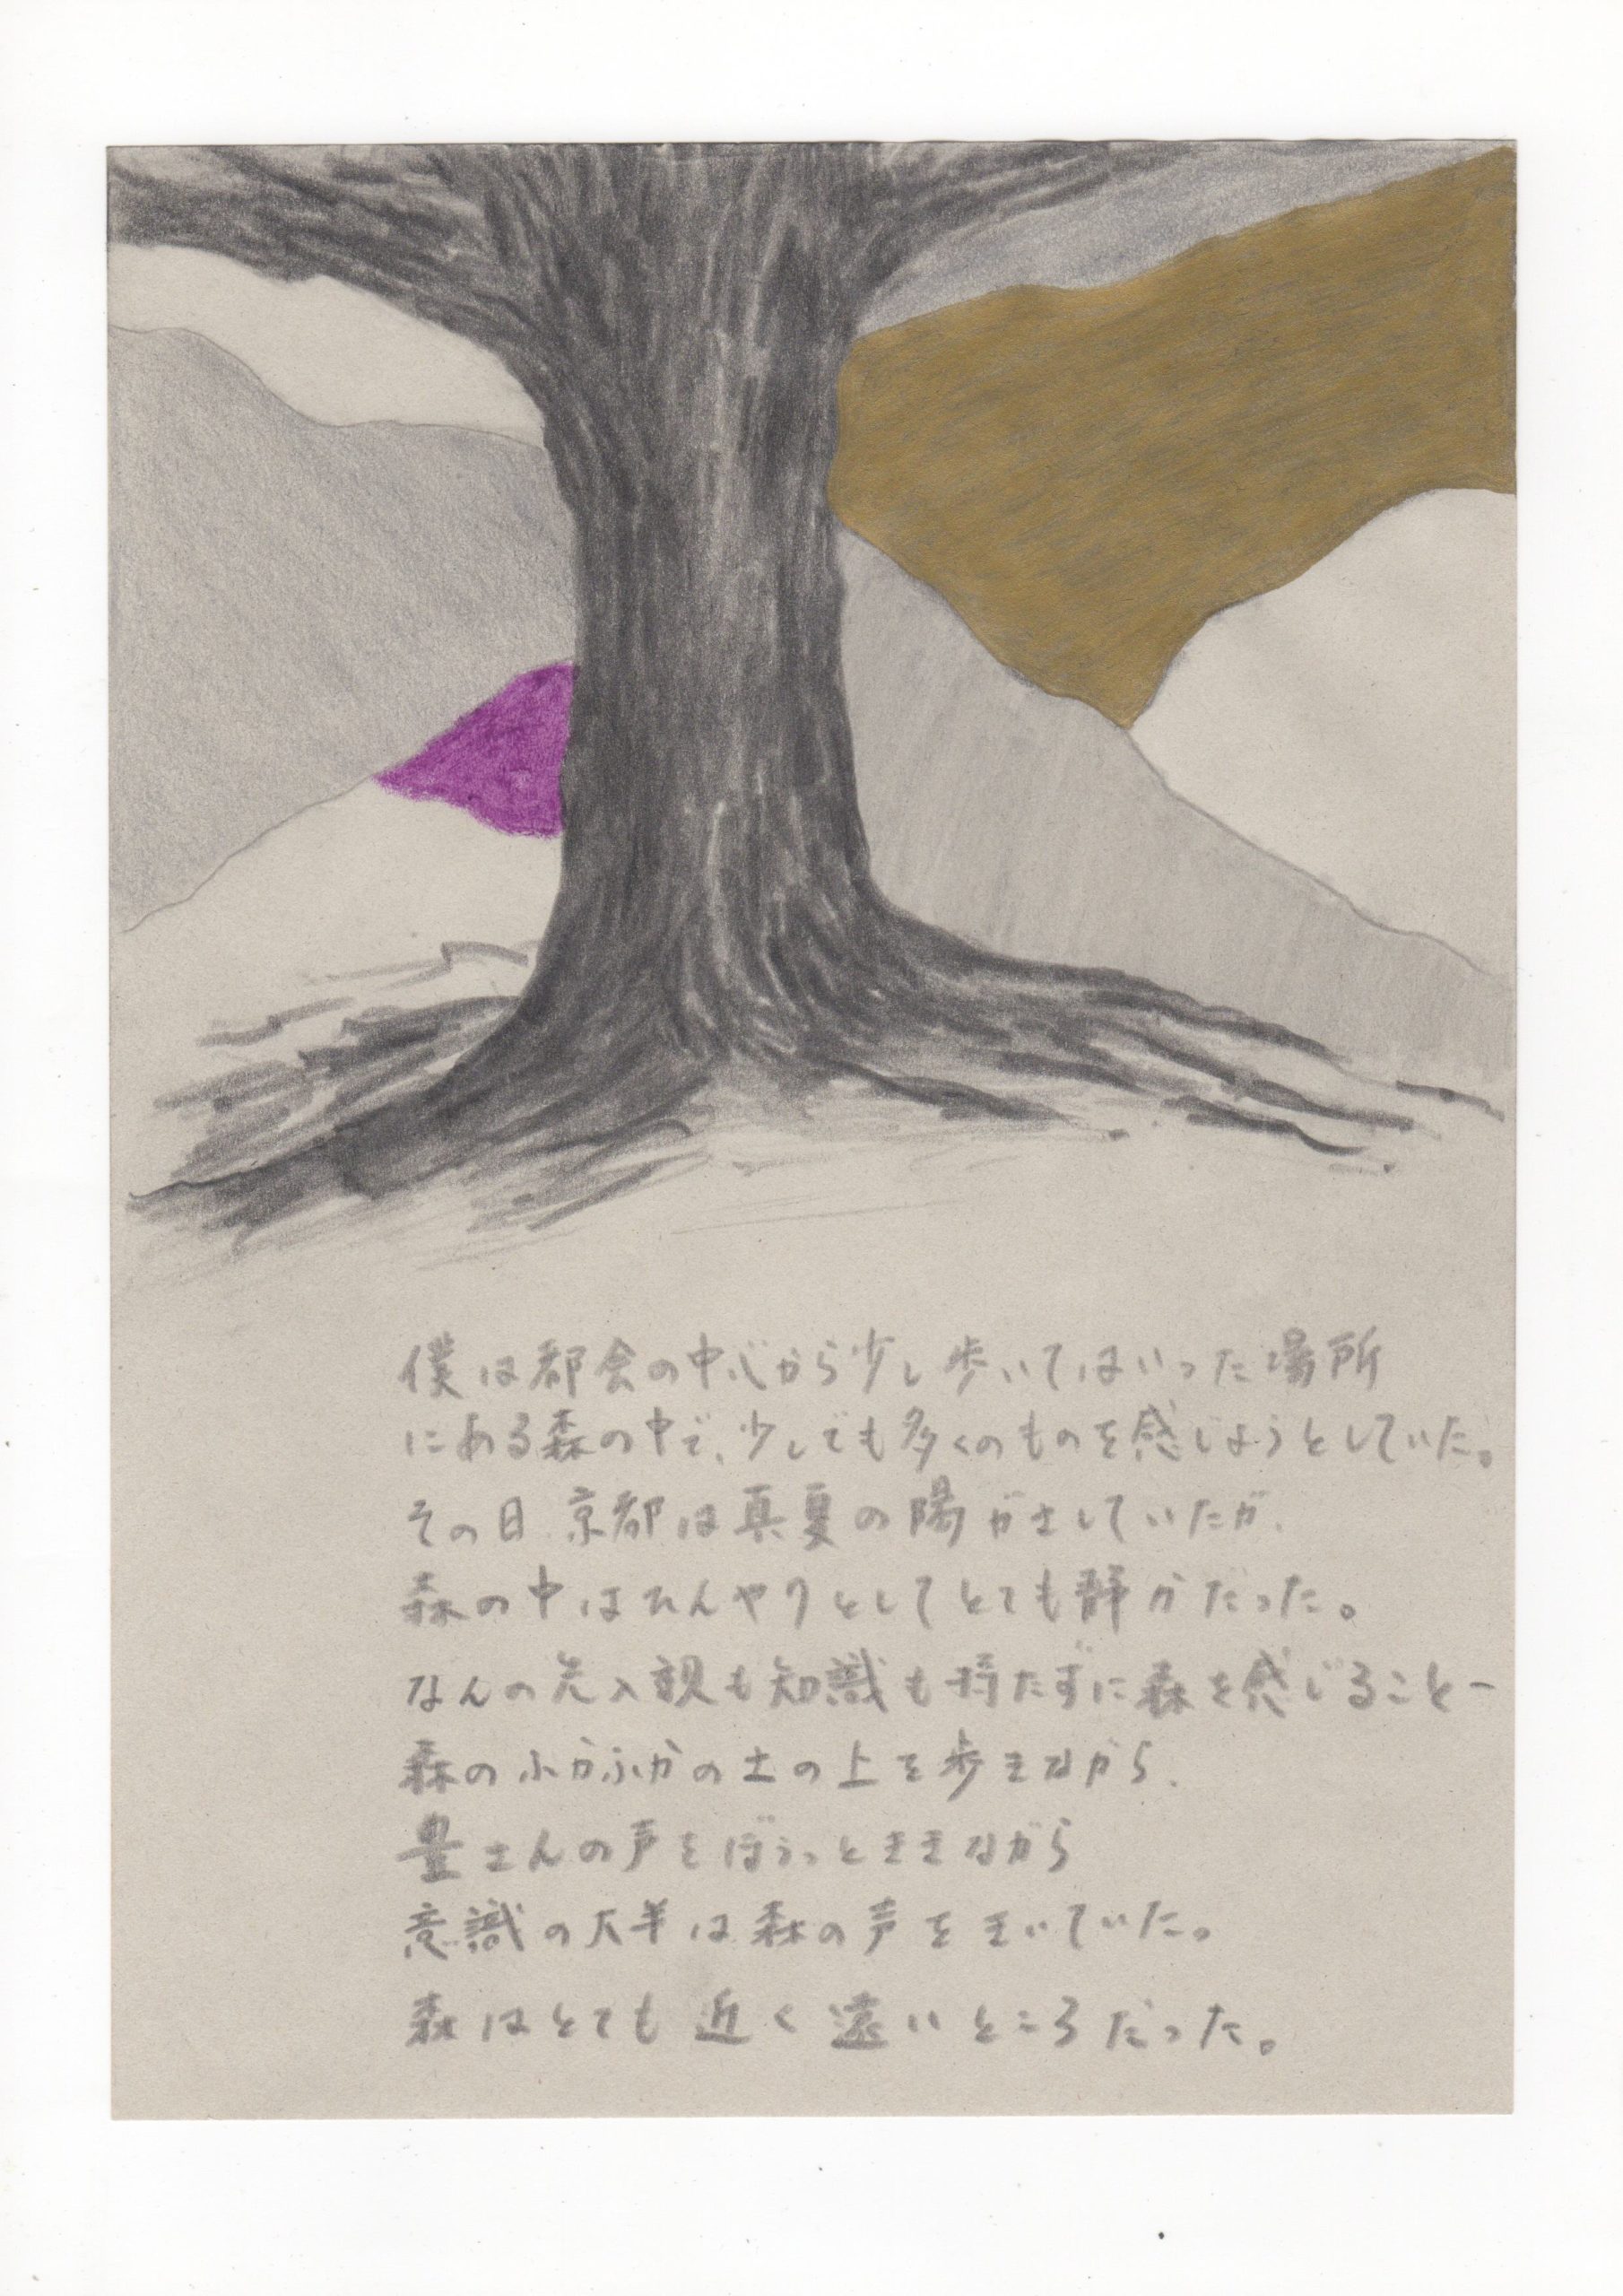 僕は都会の中心から少し歩いてはいった場所
にある森の中で、少しでも多くのものを感じようとしていた。
その日、京都は真夏の陽がさしていたが、
森の中はひんやりとしてとても静かだった。
なんの先入観も知識も持たずに森を感じること－
森のふかふかの土の上を歩きながら、
豊さんの声をぼうっとききながら
意識の大半は森の声をきいていた。
森はとても近く遠いところだった。